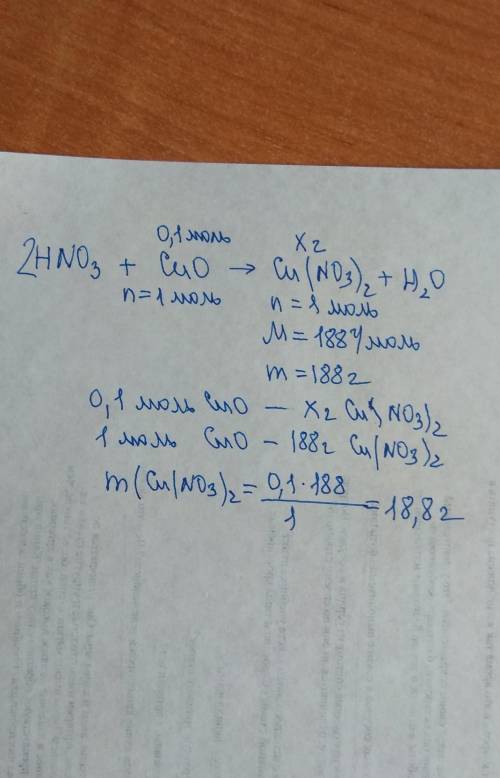 0,1 моль x г
2HNO3 + CuO → Cu(NO3)2 + H2O
n=1 моль n=1 моль
M=188г/моль
m=188г
0,1 моль CuO – x г Cu(NO3)2
1 моль CuO – 188г Cu(NO3)2
m(Cu(NO3)2 = 0,1·188 / 1 = 18,8г